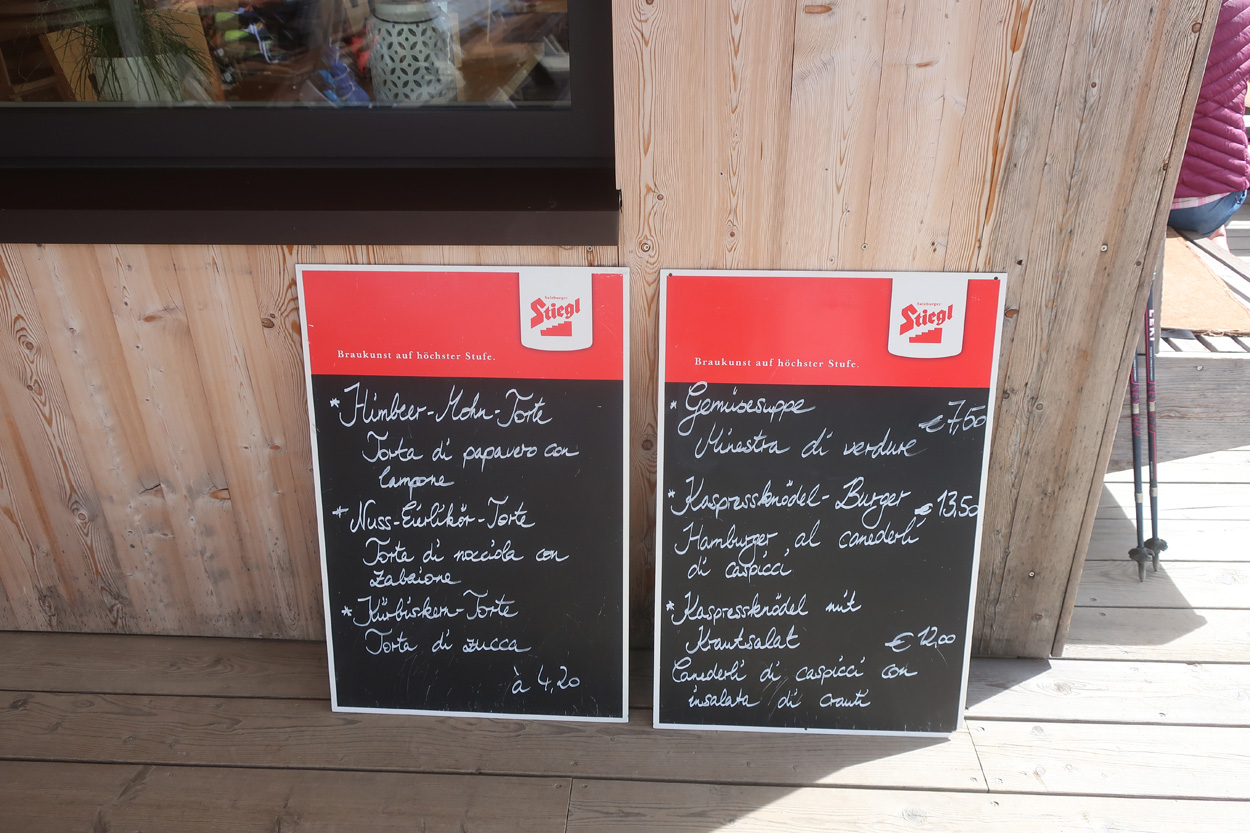 Salzburger
Stiegl
Braukunst auf höchster Stufe.
* Himbeer-Mohn-Torte
Torta di papavero con
lampone
* Nuss-Eierlikör-Torte
Torta di nocciola con
zabaione
* Kürbiskern-Torte
Torta di zucca
à 4,20
Salzburger
Stiegl
Braukunst auf höchster Stufe.
* Gemüsesuppe
€ 7,50
Minestra di verdure
* Kaspressknödel-Burger € 13,50
Hamburger al canederli
di caspicci
* Kaspressknödel mit
Krautsalat € 12,00
Canederli di caspicci con
insalata di crauti